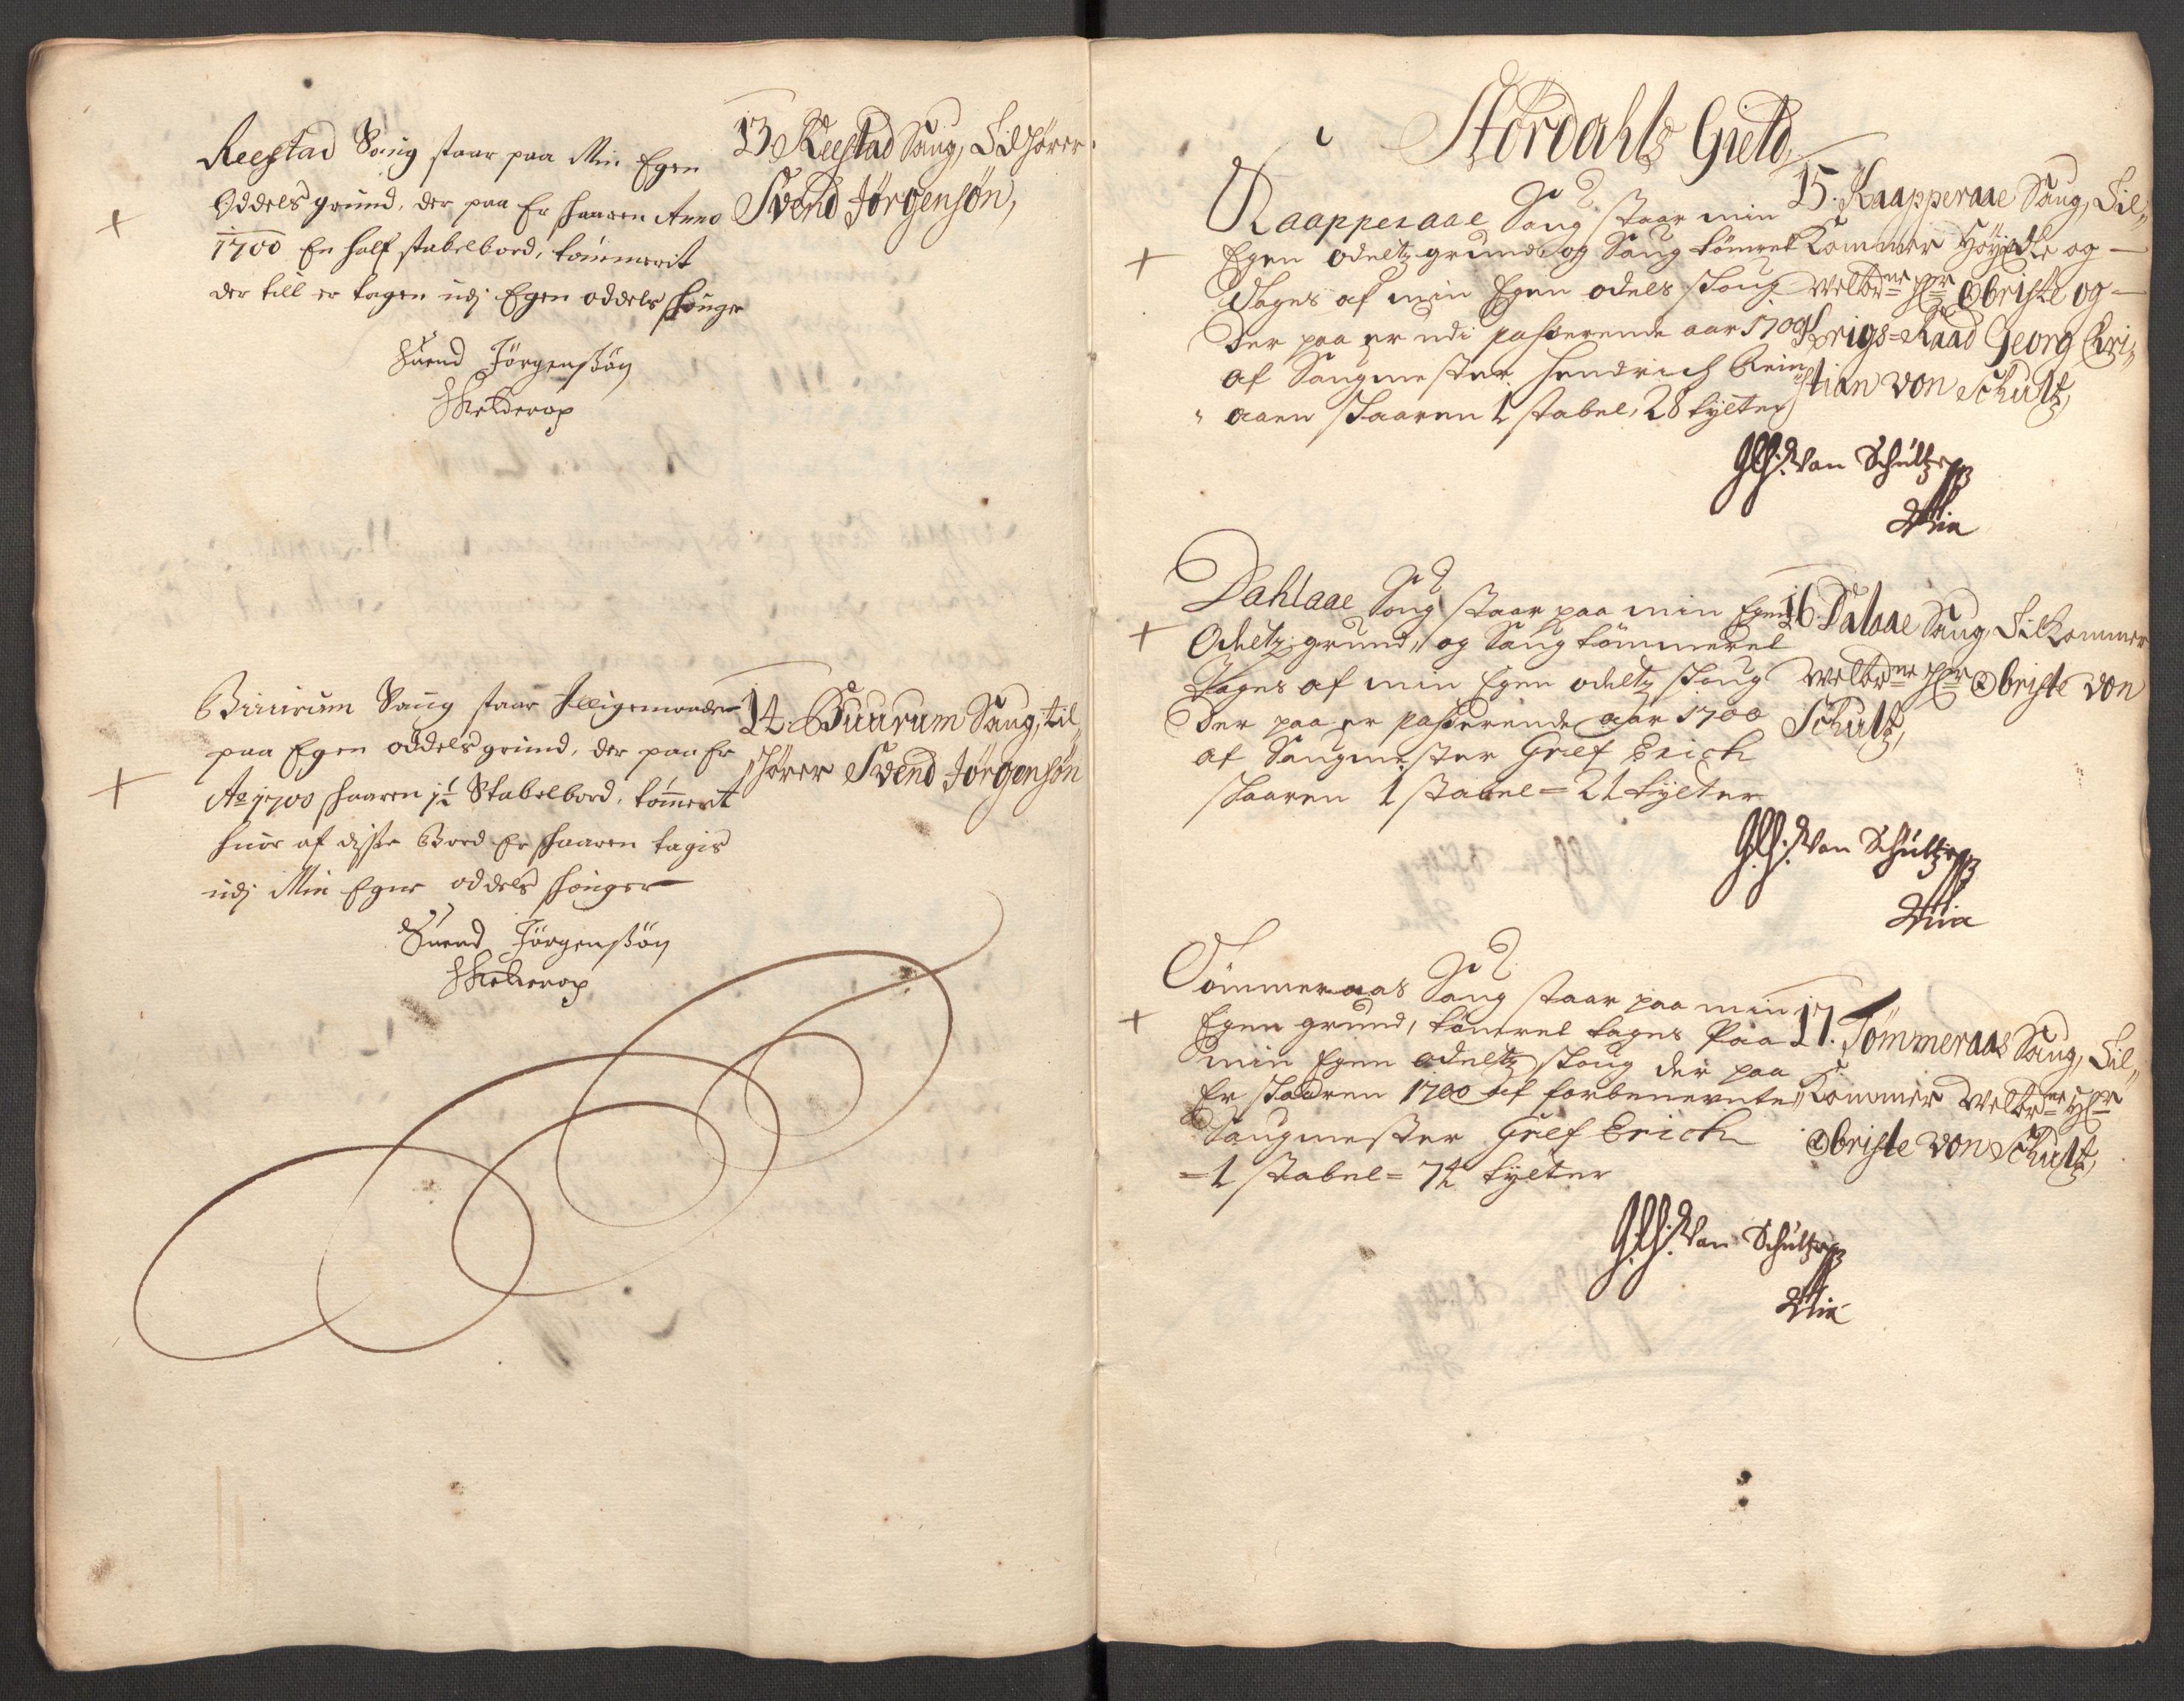 Reestad Saug staar paa Min Egen
Oddels grund, der paa Er skaaren Anno
1700 En half stabelbord, tømmerit
der till er tagen udj Egen oddels skouger
Suend Jörgensøn
13. Reestad Saug, Tilhører
Svend Jørgensøn,
Buurum Saug staar Jlligemaader
paa Egen oddels grund, der paa Er
Ao 1700 skaaren 1½ Stabelbord, tømerit
huor af disse Bord Er skaaren tagis
udj Min Egne oddels skouger
Suend Jörgensøn
14. Buurum Saug, til
hører Svend Jørgensøn
Stordahls Gield
Raapperaae Saug staar min
Egen odeltz grund og Saug tömret
Tages af min Egen odels skoug
Der paa er udi passerende aar 1700
af Saugmester Hendrich Rein
aaen skaaren 1 stabel, 28 tylter
15. Raapperaae Saug, Til„
Kommer Høyædle og
Welbrne Hr Obriste og
Krigs=Raad Georg Chri„
stian von Schultz,
GC. Von Schultz
Mia
Dahlaae Saug staar paa min Egen
Odeltz grund, og Saug tömmeret
Tages af min Egen odeltz skoug
Der paa er passerende aar 1700
af Saugmester Gref Erich
skaaren 1 stabel= 21 tylter
16. Dalaae Saug, Tilkommer
Welbrne Hr Obriste von
Schultz,
GC. Von Schultz
Mia
Tömmeraas Saug staar paa min
Egen grund, tömret tages Paa
min Egen odeltz skoug der paa
Er skaaren 1700 af forbenevnte
Saugmester Gref Erich
=1 stabel= 7½ tylter
17. Tømmeraas Saug, Til„
Kommer Welbrne Hr
Obriste von Schultz,
GC. Von Schultz
Mia